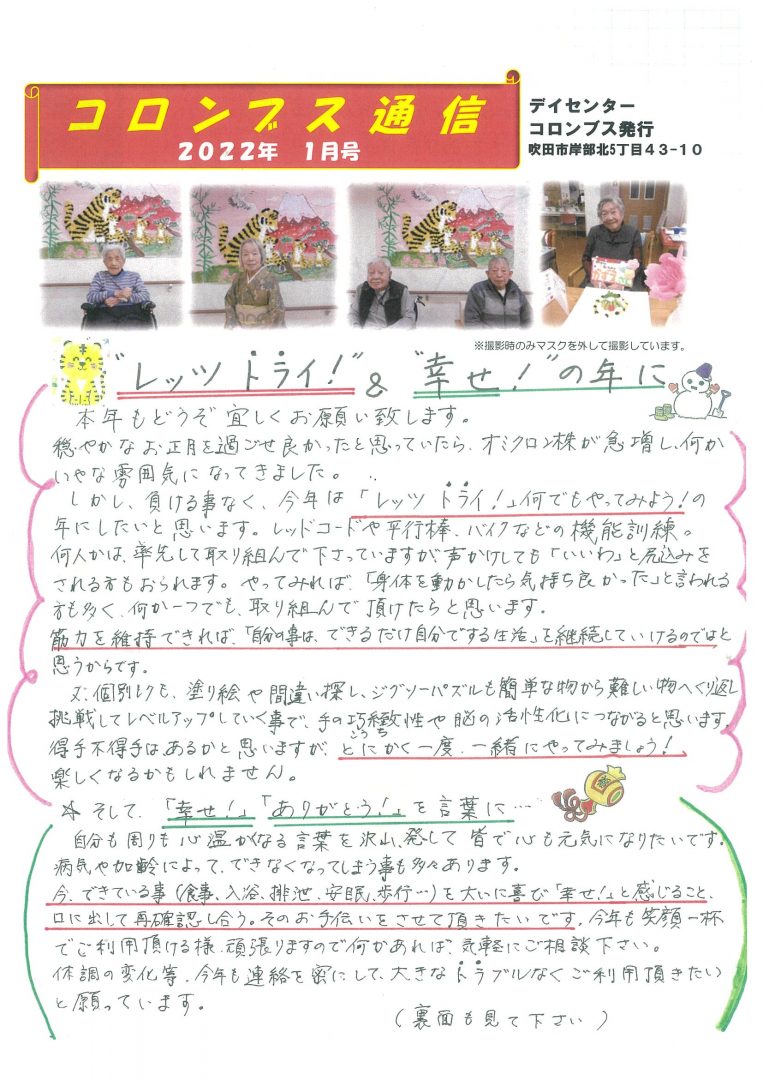 コロンブス通信
2022年 1月号
デイセンター
コロンブス発行
吹田市岸部北5丁目43-10
※撮影時のみマスクを外して撮影しています。
“レッツ トライ!” & “幸せ!”の年に
本年もどうぞ宜しくお願い致します。
穏やかなお正月を過ごせ良かったと思っていたら、オミクロン株が急増し、何か
いやな雰囲気になってきました。
しかし、負ける事なく、今年は「レッツ トライ!」何でもやってみよう!の
年にしたいと思います。レッドコードや平行棒、バイクなどの機能訓練。
何人かは、率先して取り組んで下さっていますが、声かけしても「いいわ」と尻込みを
される方もおられます。やってみれば、「身体を動かしたら気持ち良かった」と言われる
方も多く、何か一つでも、取り組んで頂けたらと思います。
筋力を維持できれば、「自分の事は、できるだけ自分でする生活」を継続していけるのではと
思うからです。
又、個別レクも、塗り絵や間違い探し、ジグソーパズルも簡単な物から難しい物へくり返し
挑戦してレベルアップしていく事で、手の巧緻性や脳の活性化につながると思います。
こうち
得手不得手はあるかと思いますが、とにかく一度、一緒にやってみましょう!、
楽しくなるかもしれません。
☆ そして、「幸せ!」「ありがとう!」を言葉に…
自分も周りも心温かなる言葉を沢山、発して皆で心も元気になりたいです。
病気や加齢によって、できなくなってしまう事も多々あります。
今、できている事(食事、入浴、排泄、安眠、歩行…)を大いに喜び「幸せ!」と感じること、
口に出して再確認し合う。そのお手伝いをさせて頂きたいです。今年も笑顔一杯
でご利用頂ける様、頑張りますので何かあれば、気軽にご相談下さい。
体調の変化等、今年も連絡を密にして、大きなトラブルなくご利用頂きたい
と願っています。
(裏面も見て下さい)